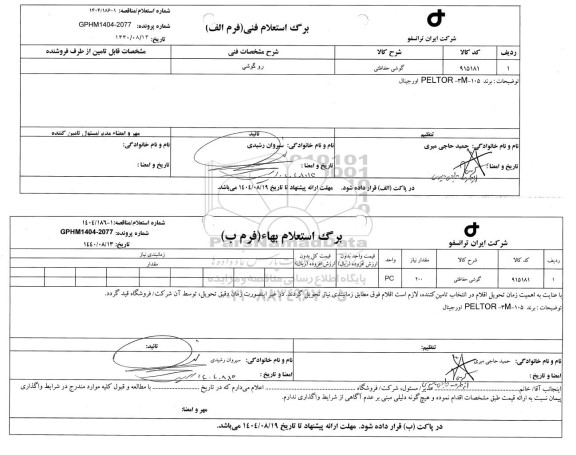 شماره استعلام/مناقصه: ۱۴۰۴/۱۸۶-۱
برگ استعلام فنی(فرم الف)
شماره پرونده: GPHM1404-2077
شرکت ایران ترانسفو
ردیف کد کالا شرح کالا شرح مشخصات فنی مشخصات قابل تامین از طرف فروشنده
۱ ۹۱۵۱۸۱ گوشی حفاظتی رو گوشی
توضیحات : برند PELTOR -۳M-۱۰۵ اورجینال
تنظیم تائید مهر و امضاء مدیر/مسئول تامین کننده
نام و نام خانوادگی: حمید حاجی میری نام و نام خانوادگی: سیروان رشیدی نام و نام خانوادگی:
تاریخ و امضا : تاریخ و امضا : تاریخ و امضا :
در پاکت (الف) قرار داده شود. مهلت ارائه پیشنهاد تا تاریخ ۱۴۰۴/۰۸/۱۹ می‌باشد.
شماره استعلام/مناقصه: ۱۴۰۴/۱۸۶-۱
برگ استعلام بهاء(فرم ب)
شماره پرونده: GPHM1404-2077
شرکت ایران ترانسفو
ردیف کد کالا شرح کالا مقدار نیاز واحد قیمت واحد بدون ارزش افزوده (ریال) قیمت کل بدون ارزش افزوده (ریال) زمانبندی نیاز
مقدار
۱ ۹۱۵۱۸۱ گوشی حفاظتی ۲۰۰ PC
پایگاه اطلاع رسانی مناقصه و مزایده
با عنایت به اهمیت زمان تحویل اقلام در انتخاب تامین کننده، لازم است اقلام فوق مطابق زمانبندی نیاز تحویل گردند. در غیر اینصورت زمان دقیق تحویل، توسط آن شرکت/ فروشگاه قید گردد.
توضیحات: برند PELTOR -۳M-۱۰۵ اورجینال
تنظیم: تائید:
نام و نام خانوادگی: حمید حاجی میری نام و نام خانوادگی: سیروان رشیدی
امضا و تاریخ : امضا و تاریخ :
اینجانب آقا/ خانم مدیر/ مسئول، شرکت/ فروشگاه اعلام می‌دارم که در تاریخ با مطالعه و قبول کلیه موارد مندرج در شرایط واگذاری
پیمان نسبت به ارائه قیمت طبق مشخصات اقدام نموده و هیچ‌گونه دلیلی مبنی بر عدم آگاهی از شرایط واگذاری ندارم.
مهر و امضا:
در پاکت (ب) قرار داده شود. مهلت ارائه پیشنهاد تا تاریخ ۱۴۰۴/۰۸/۱۹ می‌باشد.